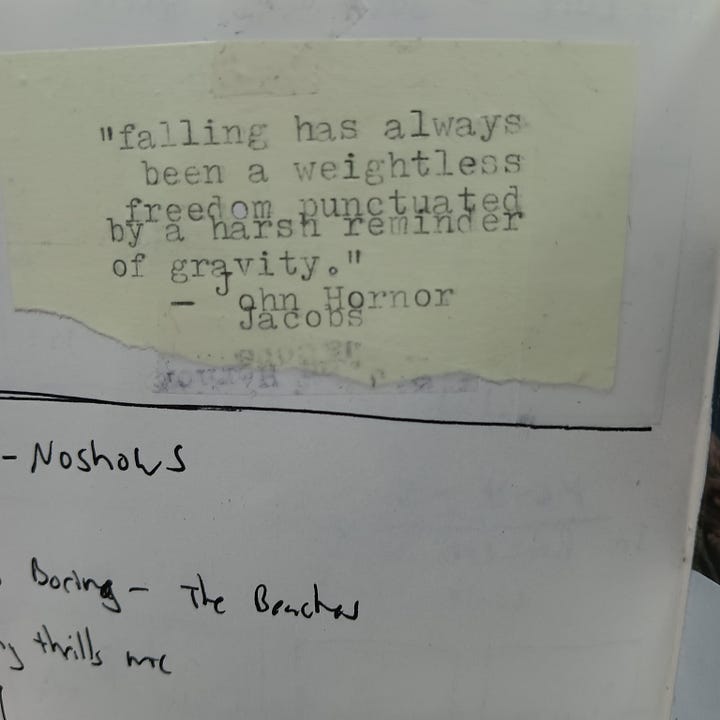 "falling has always
been a weightless
freedom punctuated
by a harsh reminder
of gravity."
— John Hornor
Jacobs
- Noshows
Boring - The Beaches
thrills me